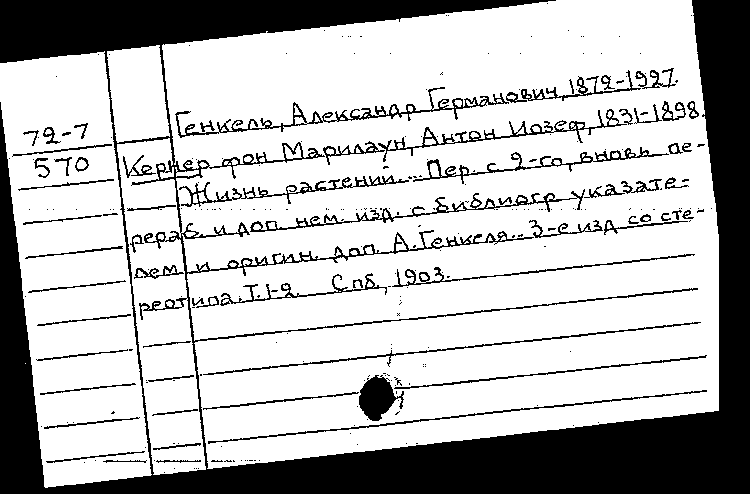 Генкель, Александр Германович, 1872-1927.
72-7
570
Кернер фон Марилаун, Антон Иозеф, 1831-1898.
Жизнь растений... Пер. с 2-го, вновь пе-
рераб. и доп. нем. изд. с библиогр указате-
лем и оригин. доп. А. Генкеля.. 3-е изд со сте-
реотипа. Т. 1-2. Спб, 1903.